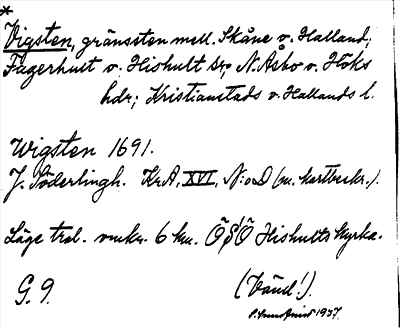 *
Vigsten, gränssten mell. Skåne o. Halland;
Fagerhult o. Hishult sr; N. Åsbo o. Höks
hdr; Kristianstads o. Hallands l.
Wigsten 1691.
J. Söderlingh. KrA, XVI, N:o D (m. kartbeskr.).
Läge trol. omkr. 6 km. ÖSÖ Hishults kyrka.
G. 9. (Vänd!).
1937.